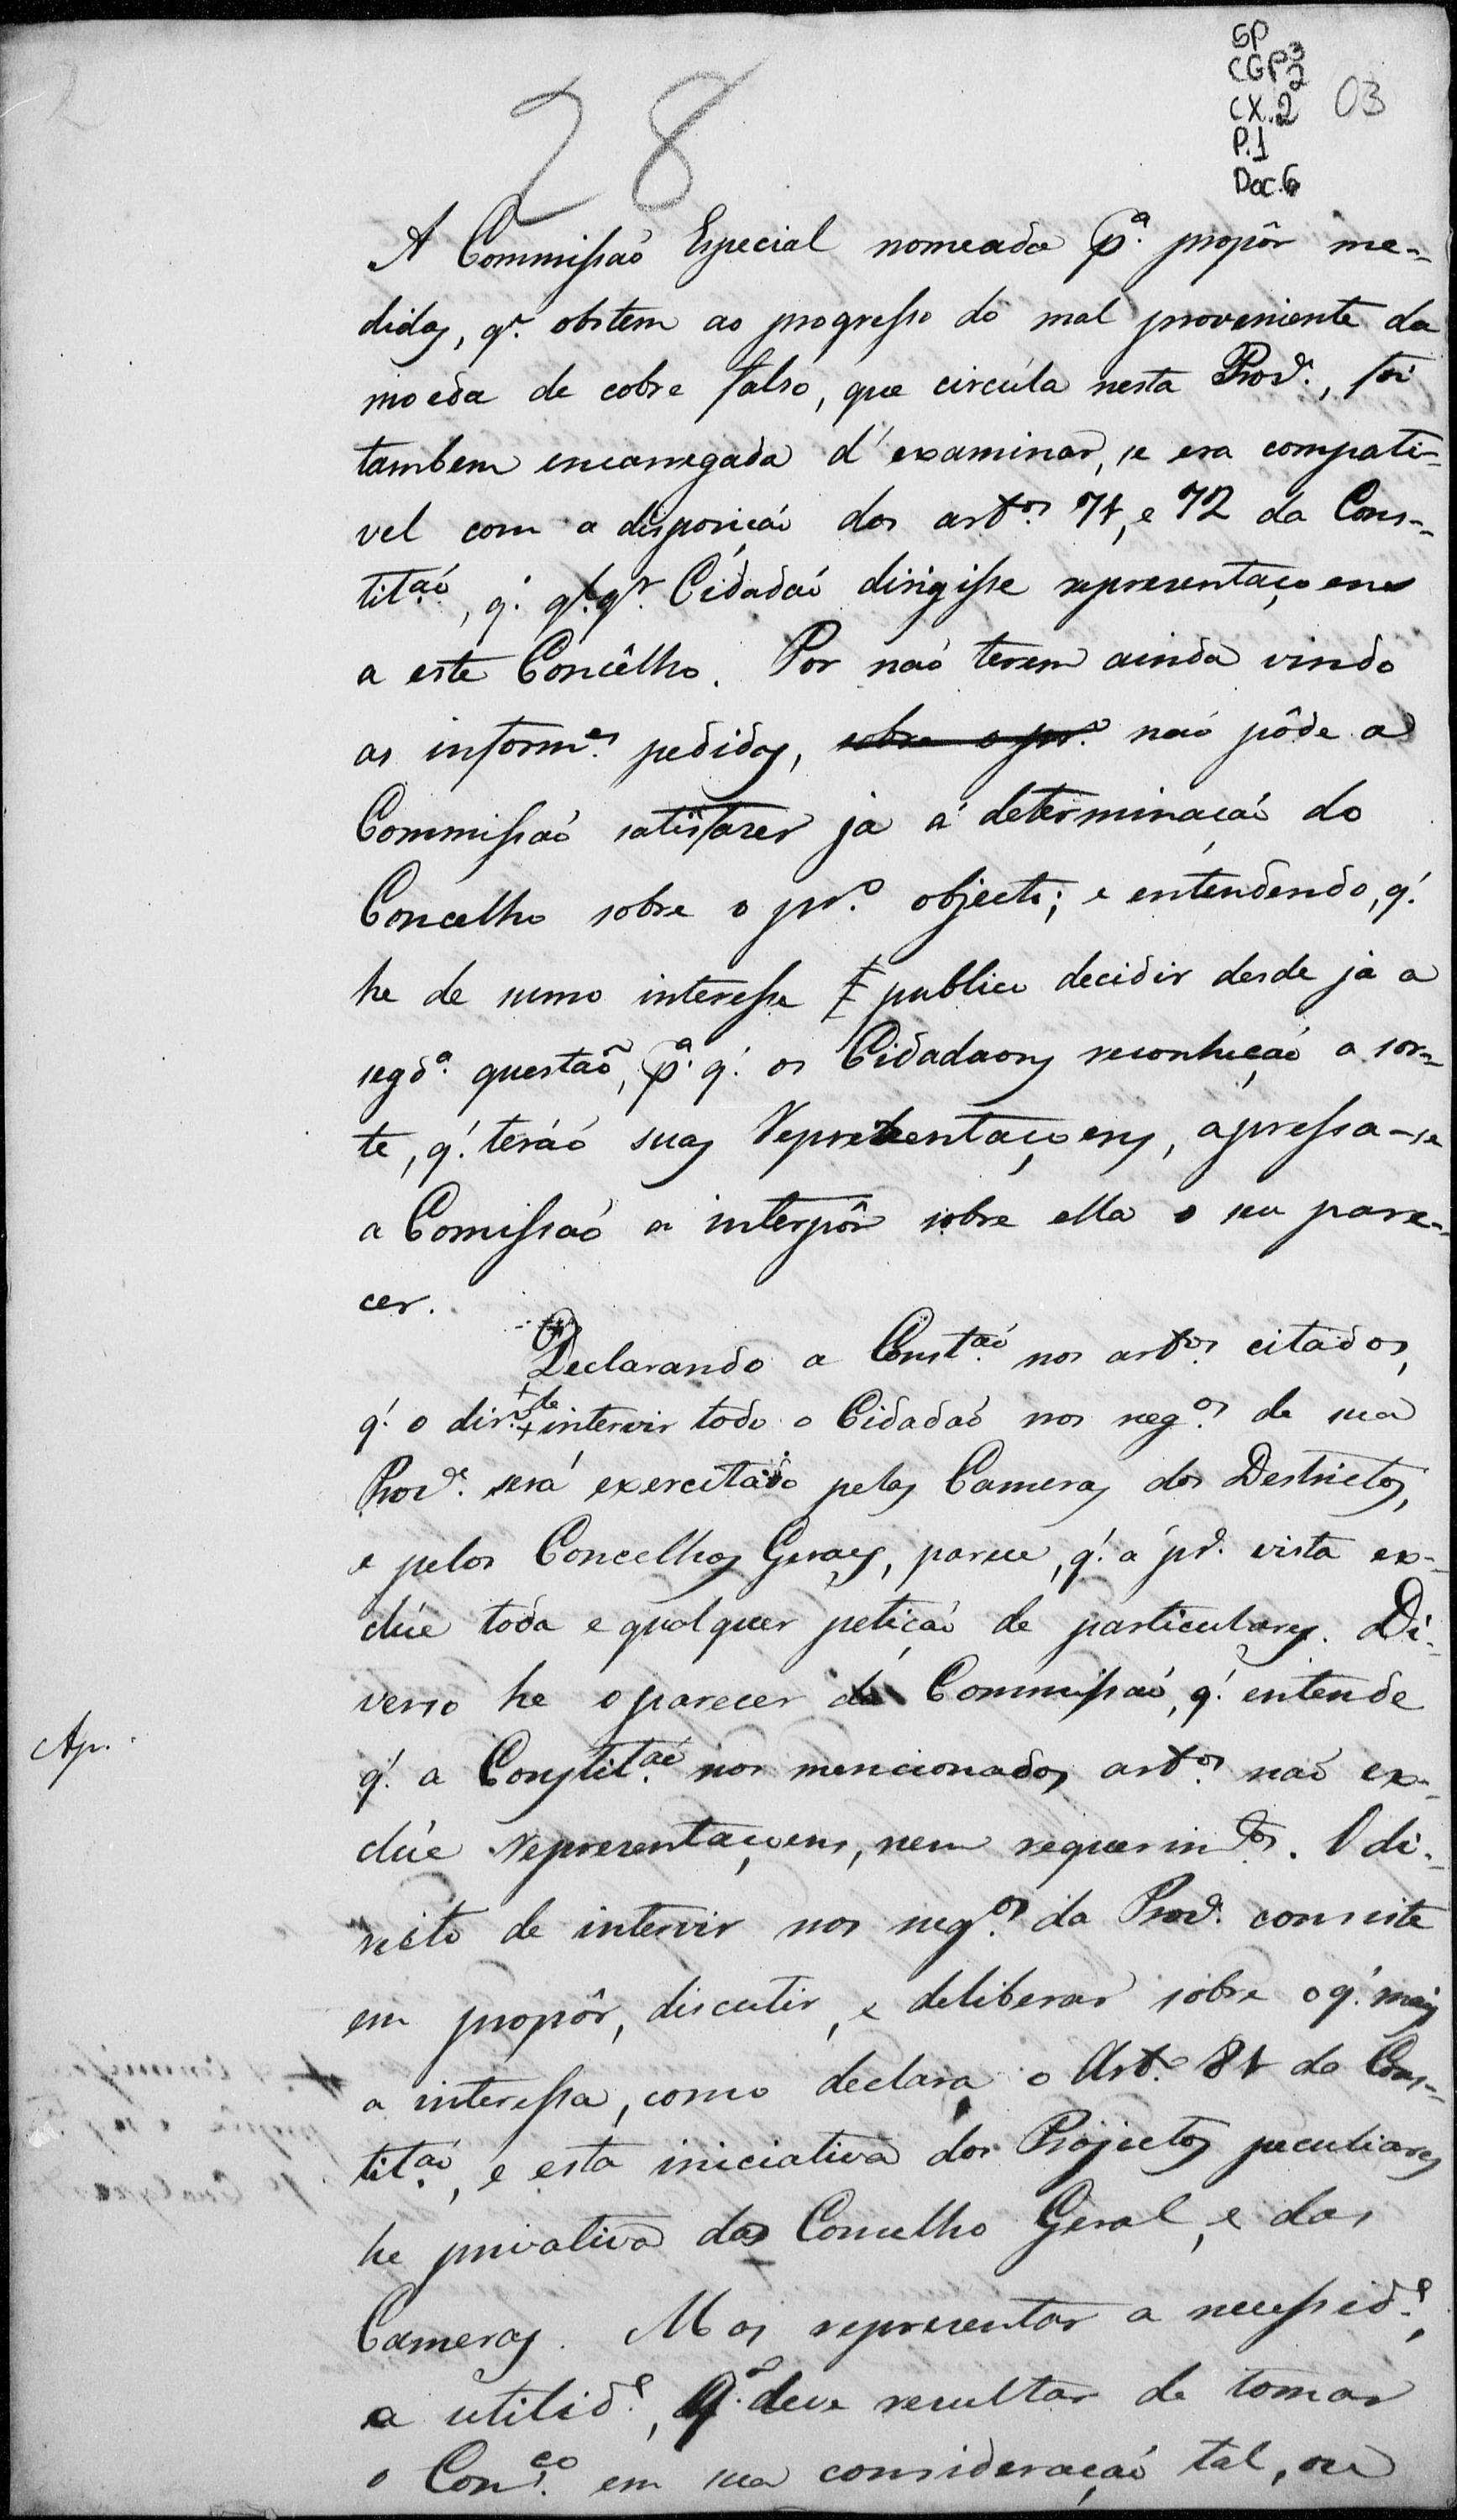 GP
CGP3
2
CX.2
03
P.1
Doc.6
28
2
A Commissaõ Especial nomeada pª. propôr me-
didas, qe. obstem ao progresso do mal proveniente da
moeda de cobre falso, que circúla nesta Prova., foi
tambem encarregada d'examinar, se era compati-
vel com a disposiçaõ dos artos. 71, e 72 da Cons-
titaõ., q'. ql.qr. Cidadaõ dirigisse representaçoens
a este Concêlho. Por naõ terem ainda vindo
as informes. pedidas, sobre o pro. naõ pôde a
Commissaõ satisfazer já á determinaçaõ do
Concelho sobre o pro. objecto; e entendendo, q'.
he de sumo interesse publico decidir desde já a
segdª. questaõ, pª. q'. os Cidadaons reconheçaõ a sor-
te, q'. teráõ suas Representaçoens, apressa-se
a Comissaõ a interpôr sobre ella o seu pare-
cer.
Declarando a Constaõ. nos artos. citados,
q'. o diro. de intervir todo o Cidadaõ nos negos. de sua
Prova. será exercitado pelas Cameras dos Destrictos,
e pelos Concelhos Geraes, parece, q'. á pra. vista ex-
clúe toda e qualquer petiçaõ de particulares. Di-
verso he o parecer da Commissaõ, q'. entende
Ap.
q'. a Constitaõ. nos mencionados artos. naõ ex-
clúe representaçoens, nem requerimtos. O di-
reito de intervir nos negos. da Prova. consiste
em propôr, discutir, e deliberar sobre o q'. mais
a interessa, como declara o Arto. 81 da Cons-
titaõ., e esta iniciativa dos Projectos peculiares
he privativa do Concelho Geral, e das
Cameras. Mas representar a necesside.,
a utilide., q'. deve resultar de tomar
o Conço. em sua consideraçaõ tal, ou